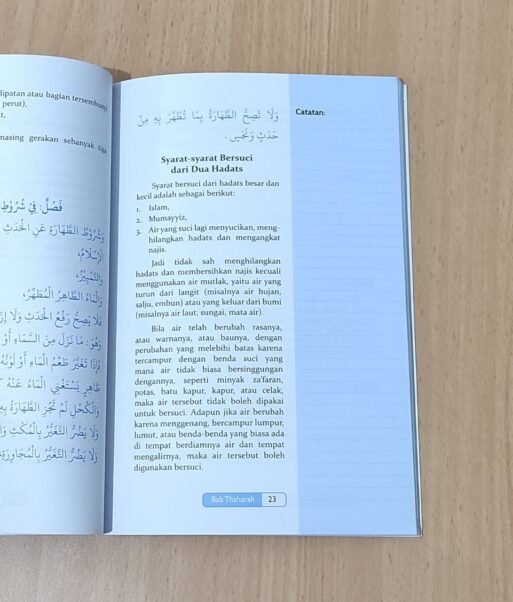 lipatan atau bagian (tersembunyi
perut),
t,
masing gerakan sebanyak tiga
فَصْلٌ: فِيْ شُرُوْطِ
وَشُرُوْطُ الطَّهَارَةِ عَنِ الْحَدَثِ
الْإِسْلَامُ،
وَالتَّمْيِيْزُ،
وَالْمَاءُ الطَّاهِرُ الْمُطَهِّرُ،
فَلَا يَصِحُّ رَفْعُ الْحَدَثِ وَلَا إِزَ
وَهُوَ: مَا نَزَلَ مِنَ السَّمَاءِ أَوْ
فَإِذَا تَغَيَّرَ طَعْمُ الْمَاءِ أَوْ لَوْنُهُ
طَاهِرٍ يَسْتَغْنِي الْمَاءُ عَنْهُ
وَالْكُحْلِ لَمْ تَجُزِ الطَّهَارَةُ بِهِ
وَلَا يَضُرُّ التَّغَيُّرُ بِالْمُكْثِ وَا
وَلَا يَضُرُّ التَّغَيُّرُ بِالْمُجَاوَرَةِ
وَلَا تَصِحُّ الطَّهَارَةُ بِمَا تُطُهِّرَ بِهِ مِنْ
حَدَثٍ وَنَجَسٍ.
Syarat-syarat Bersuci
dari Dua Hadats
Syarat bersuci dari hadats besar dan
kecil adalah sebagai berikut:
1. Islam,
2. Mumayyiz,
3. Air yang suci lagi menyucikan, meng-
hilangkan hadats dan mengangkat
najis.
Jadi tidak sah menghilangkan
hadats dan membersihkan najis kecuali
menggunakan air mutlak, yaitu air yang
turun dari langit (misalnya air hujan,
salju, embun) atau yang keluar dari bumi
(misalnya air laut, sungai, mata air).
Bila air telah berubah rasanya,
atau warnanya, atau baunya, dengan
perubahan yang melebihi batas karena
tercampur dengan benda suci yang
mana air tidak biasa bersinggungan
dengannya, seperti minyak za'faran,
potas, batu kapur, kapur, atau celak,
maka air tersebut tidak boleh dipakai
untuk bersuci. Adapun jika air berubah
karena menggenang, bercampur lumpur,
lumut, atau benda-benda yang biasa ada
di tempat berdiamnya air dan tempat
mengalirnya, maka air tersebut boleh
digunakan bersuci.
Bab Thaharah 23
Catatan: